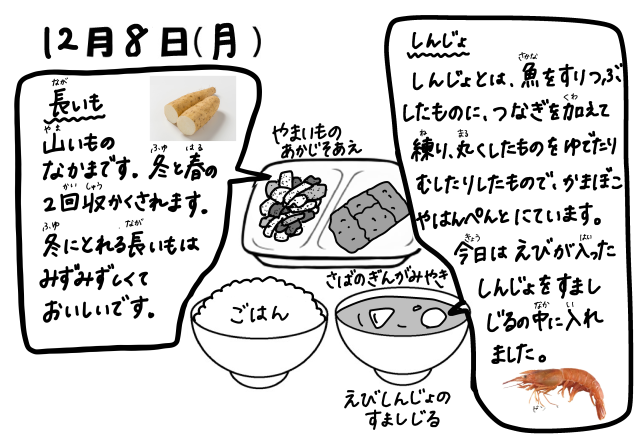 12月8日(月)
長いも
ながいも
山いもの
なかまです。冬と春の
2回収かくされます。
冬にとれる長いもは
みずみずしくて
おいしいです。
やまいもの
あかじそあえ
さばのぎんがみやき
ごはん
えびしんじょの
すましじる
しんじょ
しんじょとは、魚をすりつぶ
したものに、つなぎを加えて
練り、丸くしたものをゆでたり
むしたりしたもので、かまぼこ
やはんぺんとにています。
今日はえびが入った
しんじょをすまし
じるの中に入れ
ました。